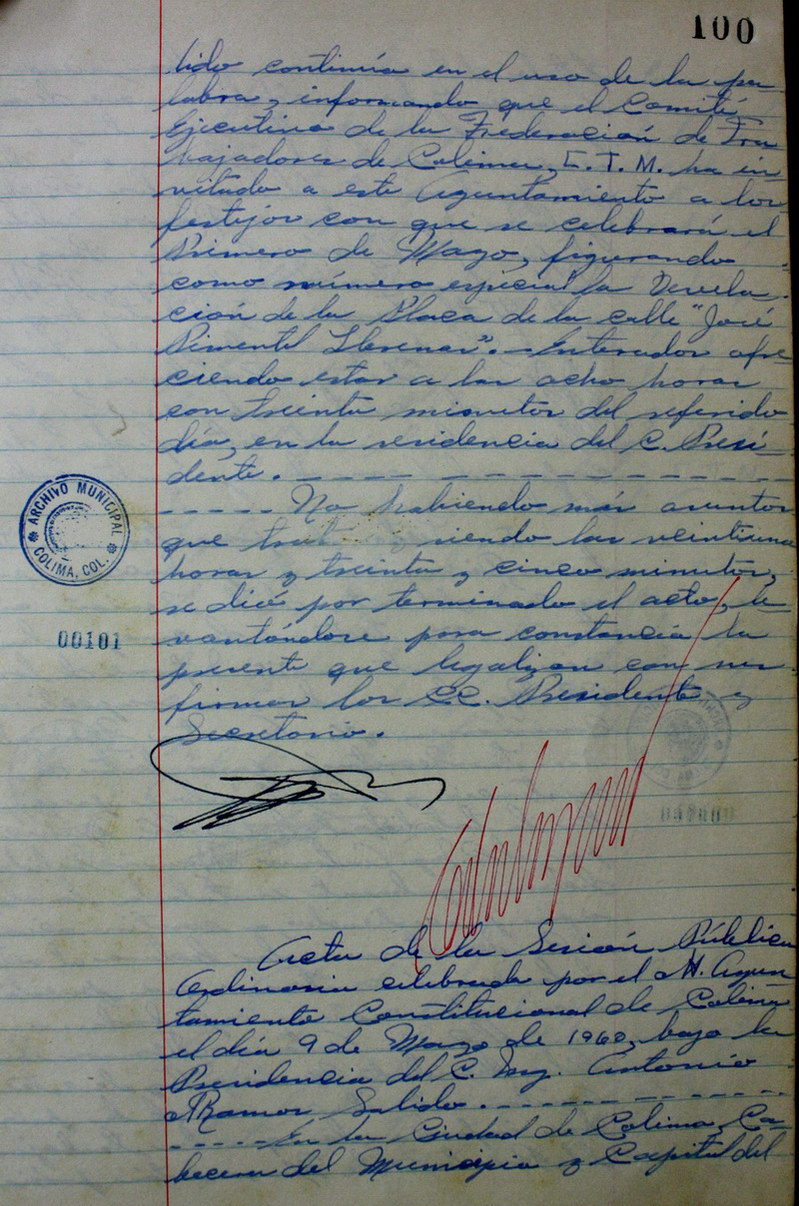 100
lido continúa en el uso de la pa-
labra, informando que el Comité
Ejecutivo de la Federación de Tra
bajadores de Colima, C.T.M. ha in-
vitado a este Ayuntamiento a los
festejos con que se celebrará el
Primero de Mayo, figurando
como número especial la Devela-
ción de la Placa de la calle "José
Pimentel Llerenas".- Enterados ofre
ciendo estar a las ocho horas
con treinta minutos del referido
día, en la residencia del C. Presi-
dente. - - - - - - - - - - - -
- - - - - No habiendo más asuntos
que y siendo las veintiuna
horas y treinta y cinco minutos,
se dió por terminado el acto, le
vantándose para constancia la
presente que legalizan con sus
firmas los CC. Presidente y
Secretario.
ARCHIVO MUNICIPAL
COLIMA, COL.
00101
Acta de la Sesión Pública
Ordinaria celebrada por el H. Ayun
tamiento Constitucional de Colima
el día 9 de Mayo de 1960, bajo la
Presidencia del C. Ing. Antonio
Ramos Salido. - - - - - - - - - -
- - - - - En la Ciudad de Colima, Ca-
becera del Municipio y Capital del